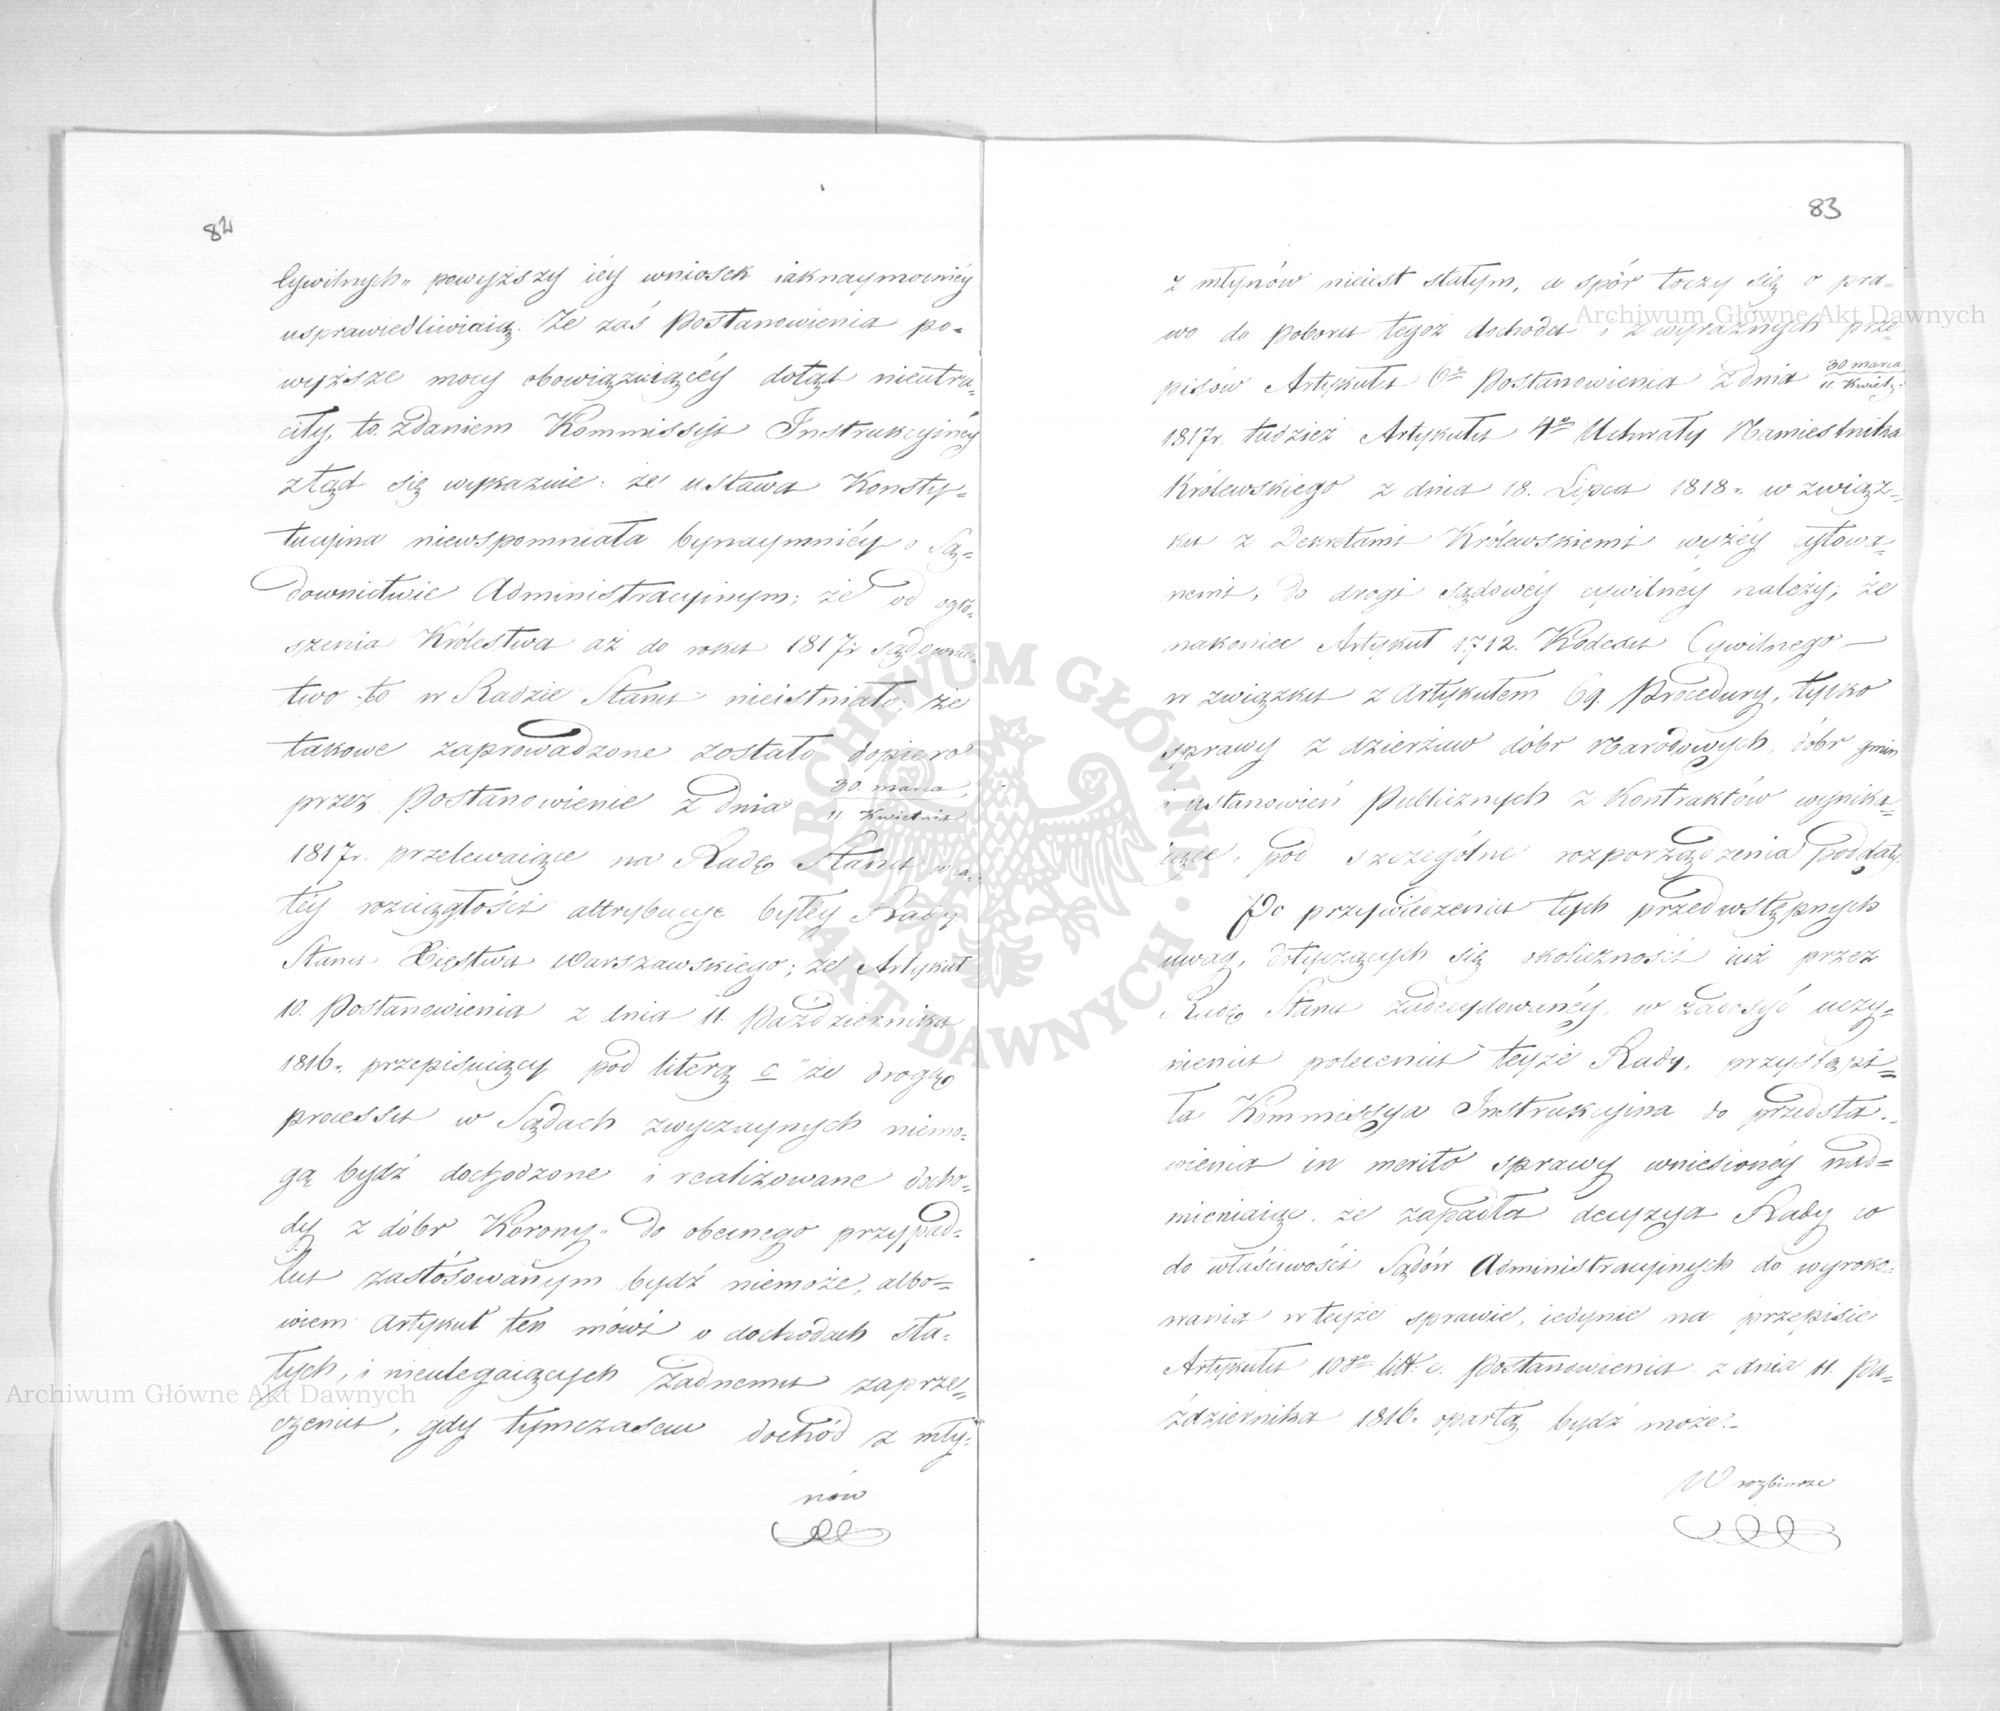 82
Cywilnych„ powyższy iéy wniosek iaknaymocniéy
usprawiedliwiaią. Że zaś Postanowienia po=
wyższe mocy obowiązuiącéy dotąd nieutra=
ciły, to zdaniem Kommissyi Instrukcyinéy
ztąd się wykazuie: że ustawa Konsty=
tucyina niewspomniała bynaymniéy o Są=
downictwie Administracyinym; że od ogło=
szenia Królestwa aż do roku 1817r. sądownic=
two to w Radzie Stanu nieistniało; że
takowe zaprowadzone zostało dopiero
przez Postanowienie z dnia 30. marca
11. Kwietnia
1817r. przelewaiące na Radę Stanu w ca=
łéy rozciągłości attrybucye byłéy Rady
Stanu Xięstwa Warszawskiego; że Artykuł
10. Postanowienia z dnia 11. Października
1816r. przepisuiący pod literą c „że drogą
processu w Sądach zwyczaynych niemo=
gą bydź dochodzone i realizowane docho=
dy z dóbr Korony„ do obecnego przypad=
ku zastósowanym bydź niemoże, albo=
wiem Artykuł ten mówi o dochodach sta=
łych, i nieulegaiących żadnemu zaprze=
czeniu, gdy tymczasem dochód z mły=
nów
83
z młynów nieiest stałym, a spór toczy się o pra=
wo do poboru tegoż dochodu i z wyraźnych prze=
pisów Artykułu 6go Postanowienia z dnia 30 marca
11. Kwietn:
1817r. tudzież Artykułu 4go Uchwały Namiestnika
Królewskiego z dnia 18. Lipca 1818r. w związ=
ku z Dekretami Królewskiemi wyżéy cytowa=
nemi, do drogi sądowéy cywilnéy należy; że
nakoniec Artykuł 1712. Kodexu Cywilnego
w związku z Artykułem 69. Procedury, tylko
sprawy z dzierżaw dóbr Narodowych, dóbr gmin
i ustanowień Publicznych z Kontraktów wynika=
iące, pod szczególne rozporządzenia poddały.
Po przywiedzeniu tych przedwstępnych
uwag, dotyczących się okoliczności iuż przez
Radę Stanu zadecydowanéy, w zadosyć uczy=
nieniu poleceniu teyże Rady, przystąpi=
ła Kommissya Instrukcyina do przedsta=
wienia in merito sprawy wniesionéy nad=
mieniaiąc, że zapadła decyzya Rady co
do właściwości Sądów Administracyinych do wyroko=
wania w teyże sprawie, iedynie na przepisie
Artykułu 10go litt. c. Postanowienia z dnia 11. Pa=
ździernika 1816r. opartą bydź może.
W rozbiorze
Archiwum Główne Akt Dawnych
Archiwum Główne Akt Dawnych
ARCHIWUM GŁÓWNE AKT DAWNYCH